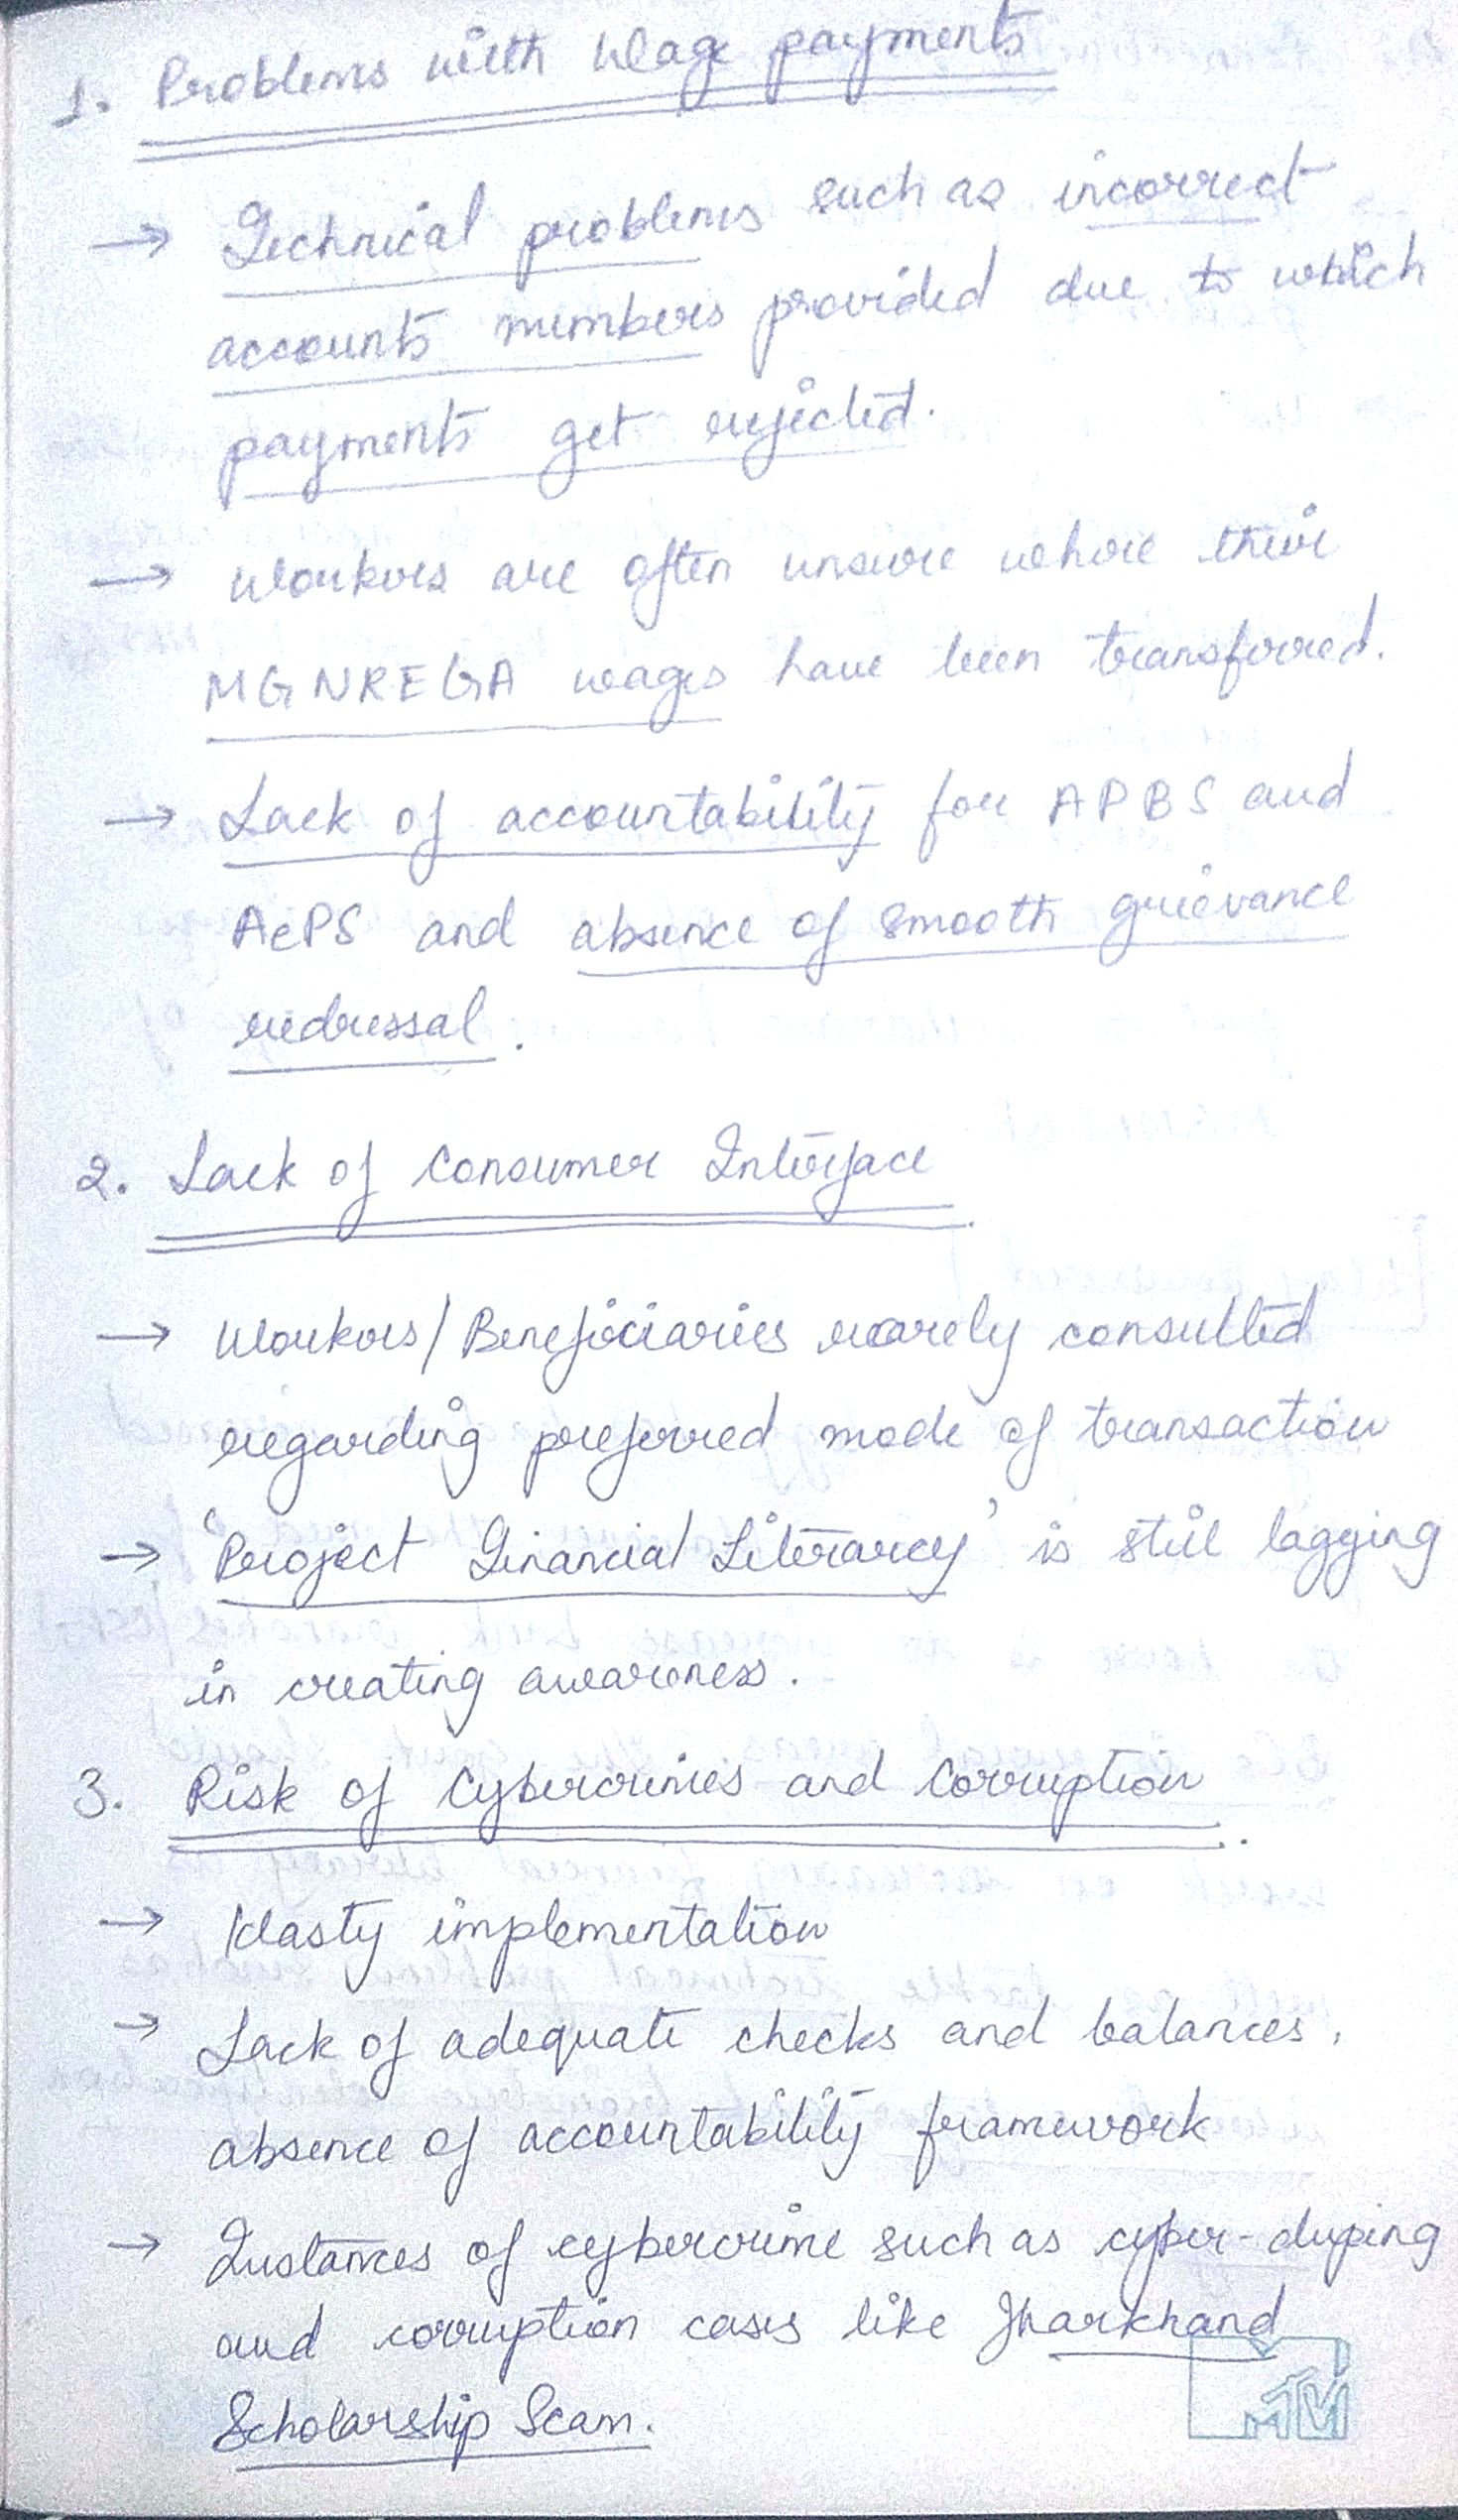 1. Problems with Wage payments
→ Technical problems such as incorrect
accounts numbers provided due to which
payments get rejected.
→ Workers are often unsure where their
MGNREGA wages have been transferred.
→ Lack of accountability for APBS and
AePS and absence of smooth grievance
redressal.
2. Lack of Consumer Interface
→ Workers/Beneficiaries rarely consulted
regarding preferred mode of transaction
→ 'Project Financial Literarcy' is still lagging
in creating awareness.
3. Risk of Cybercrimes and Corruption.
→ Hasty implementation
→ Lack of adequate checks and balances,
absence of accountability framework
→ Instances of cybercrime such as cyber-duping
and corruption cases like Jharkhand
Scholarship Scam.
MTV